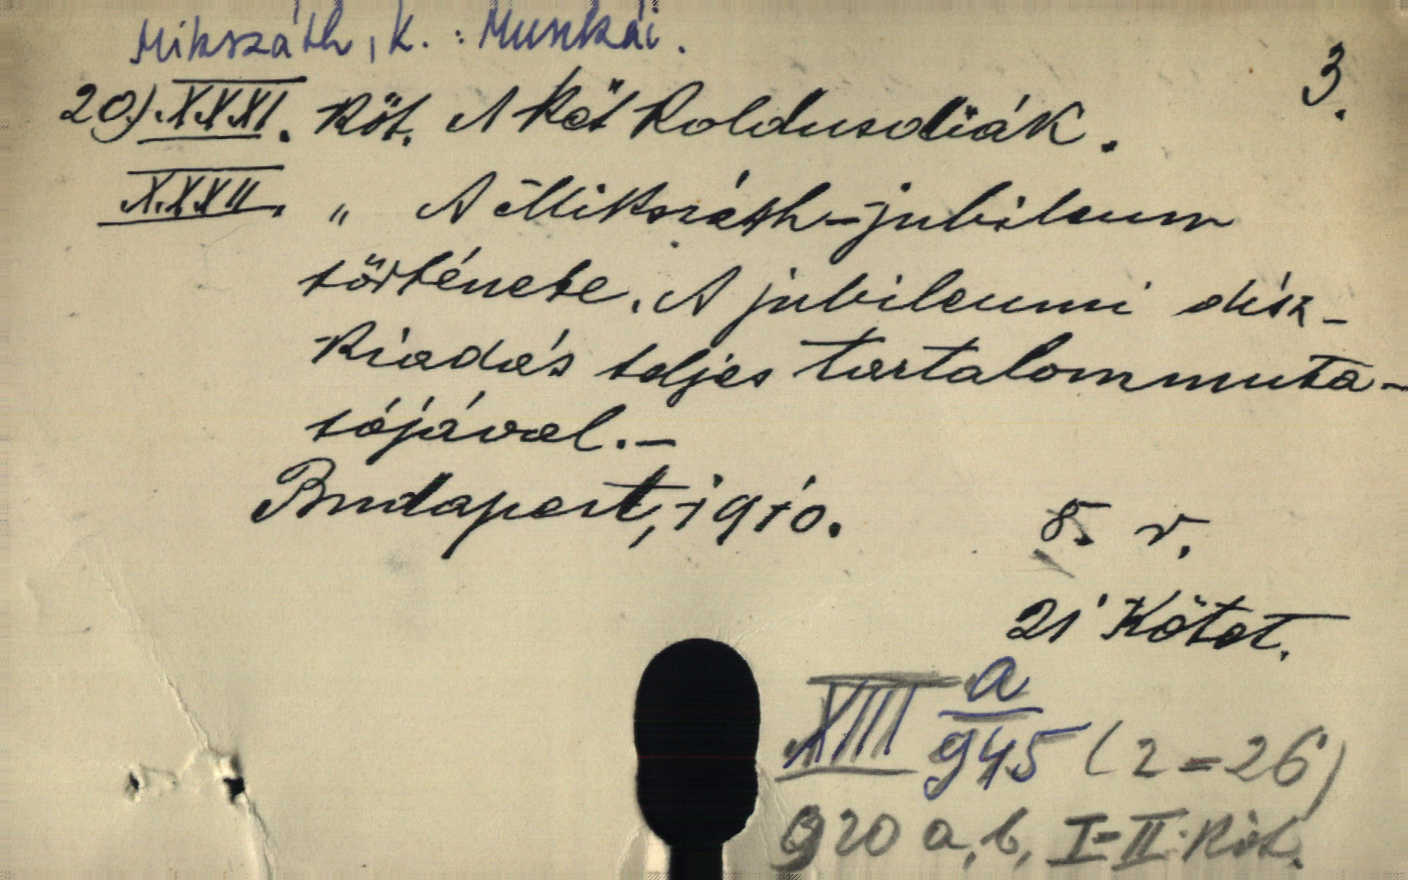 Mikszáth, K. : Munkái.
3.
20.) XXXI. Köt. A két koldusdiák.
XXXII. " A Mikszáth-jubileum
története. A jubileumi dísz-
kiadás teljes tartalommuta-
tójával.-
Budapest, 1910.
8. r.
21 kötet.
XIII a
945 (2=26)
920 a, b, I-II. Köt.